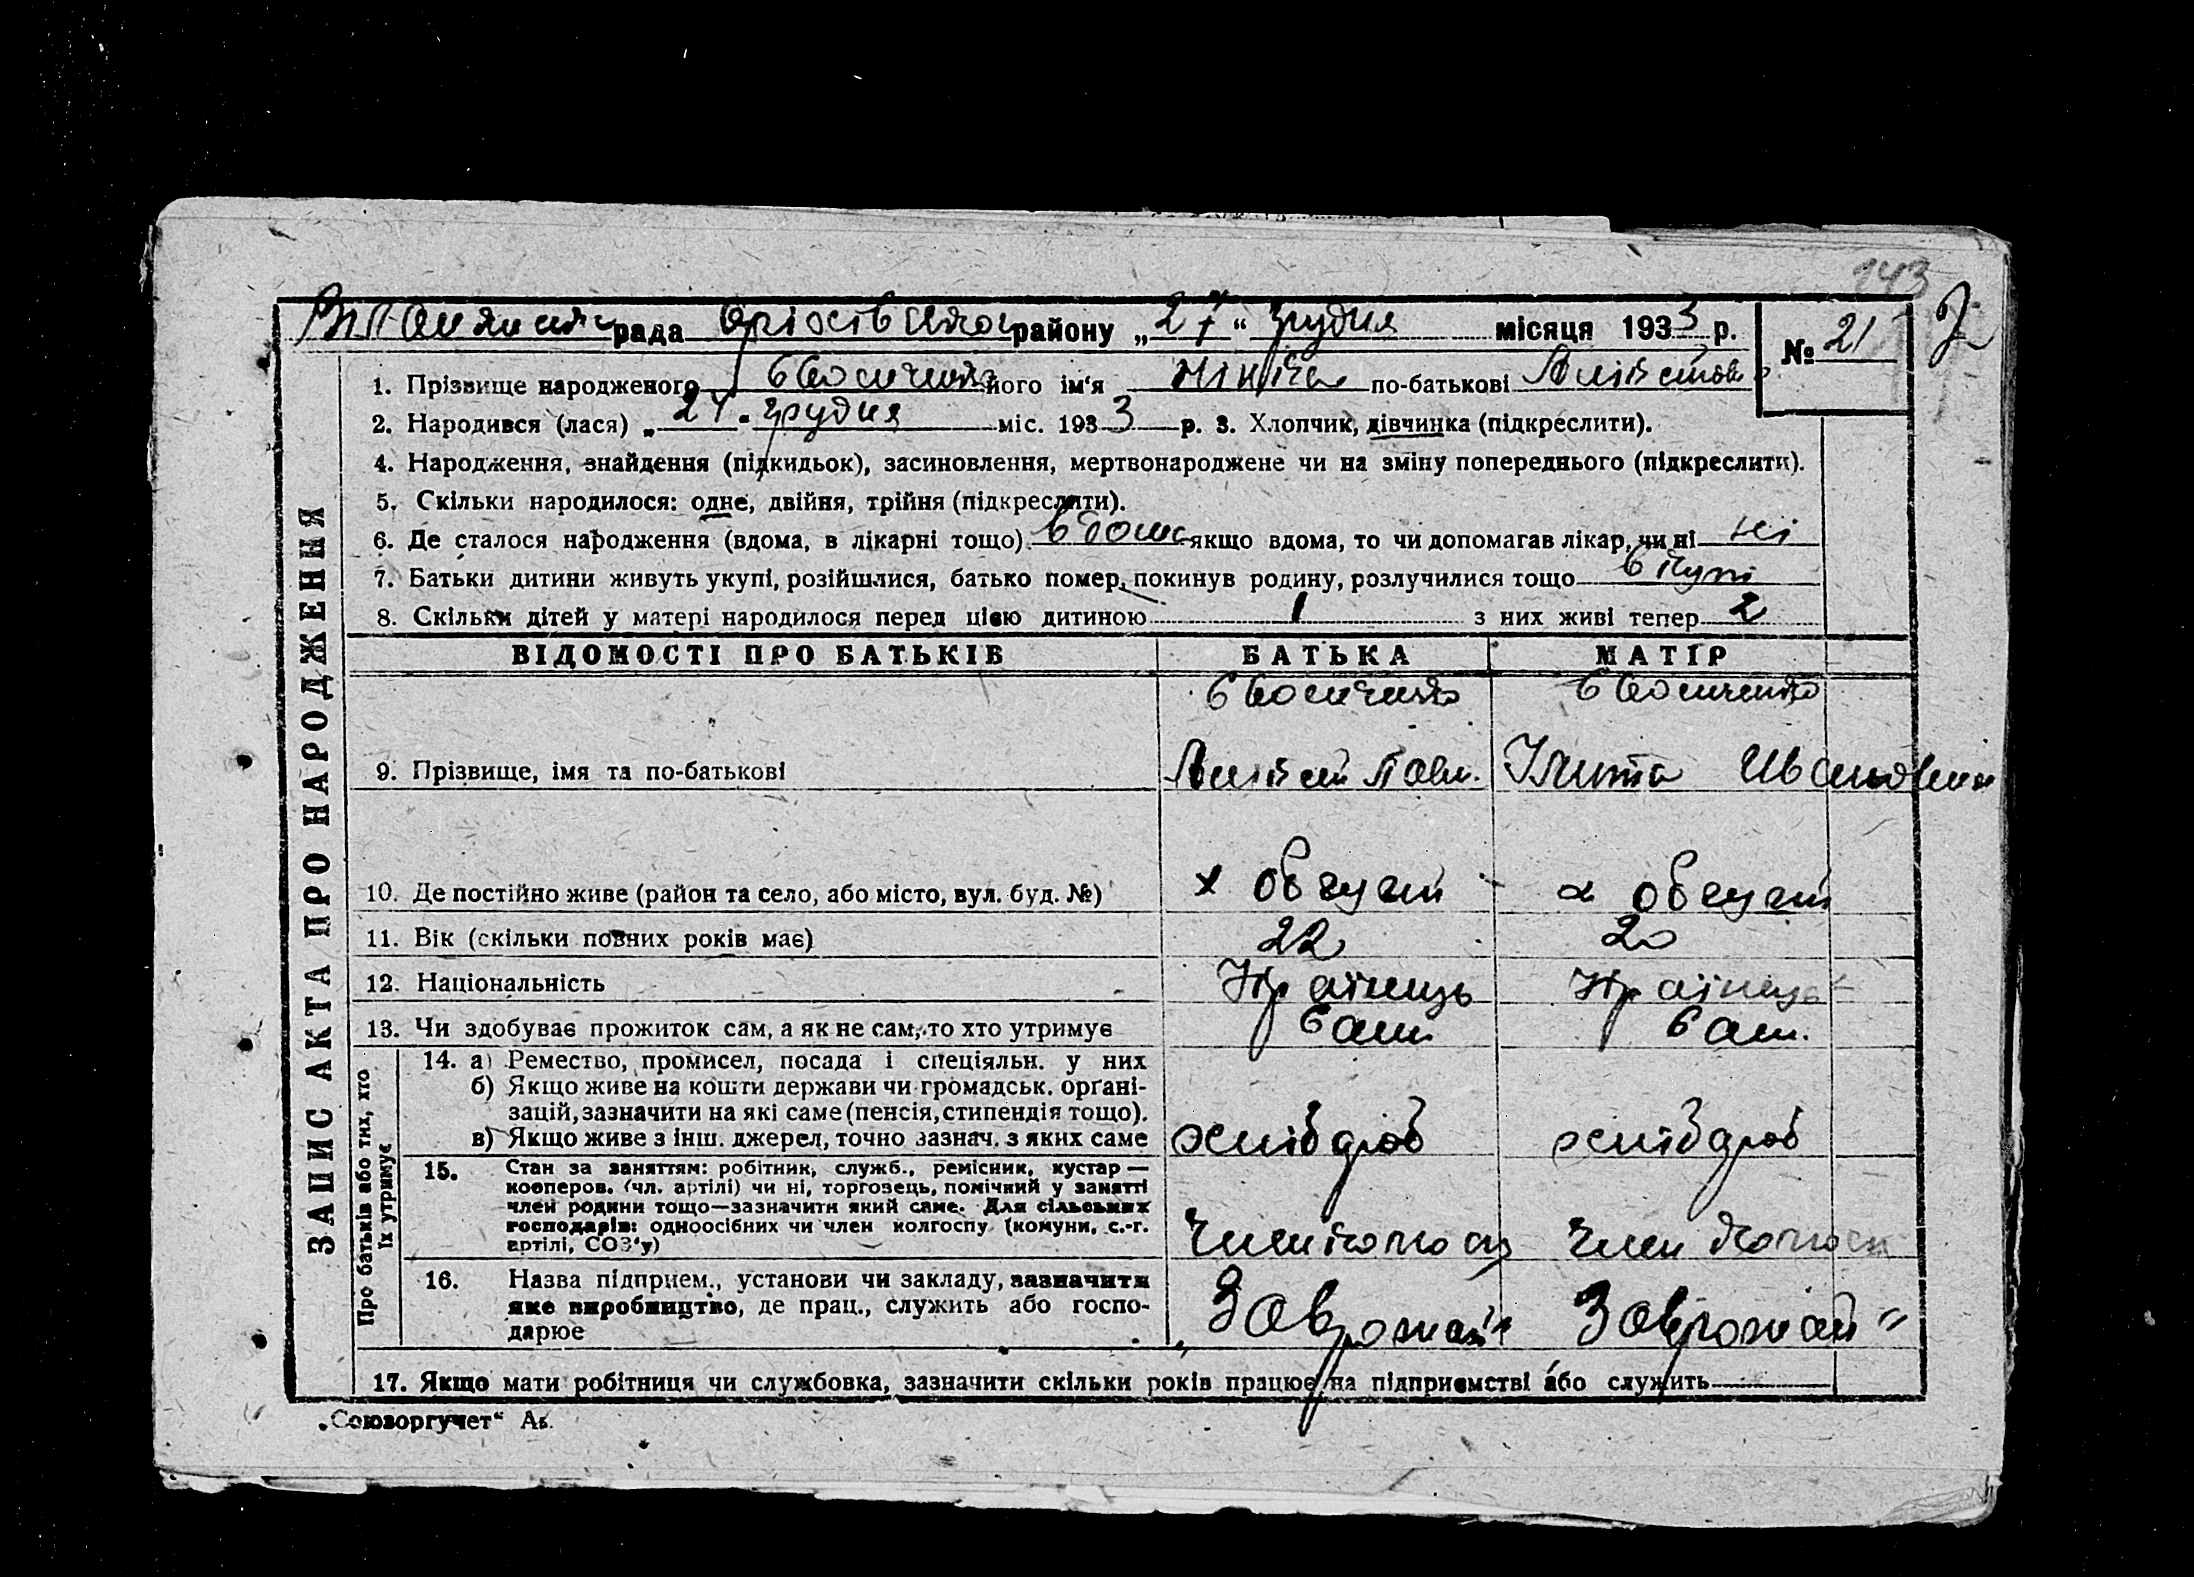 143
рада району „27“ грудня місяця 1933 р. № 21
1. Прізвище народженого його ім‘я по-батькові
2. Народився (лася) „24“ грудня міс. 1933 р. 3. Хлопчик, дівчинка (підкреслити).
4. Народження, знайдення (підкидьок), засиновлення, мертвонароджене чи на зміну попереднього (підкреслити).
5. Скільки народилося: одне, двійня, трійня (підкреслити).
6. Де сталося народження (вдома, в лікарні тощо) вдома якщо вдома, то чи допомагав лікар, чи ні ні
7. Батьки дитини живуть укупі, розійшлися, батько помер, покинув родину, розлучилися тощо вкупі
8. Скільки дітей у матері народилося перед цією дитиною 1 з них живі тепер 2
ЗАПИС АКТА ПРО НАРОДЖЕННЯ
ВІДОМОСТІ ПРО БАТЬКІВ БАТЬКА МАТІР
9. Прізвище, імя та по-батькові
10. Де постійно живе (район та село, або місто, вул. буд. №)
11. Вік (скільки повних років має) 22 20
12. Національність Українець Українець
13. Чи здобуває прожиток сам, а як не сам, то хто утримує сам сам.
Про батьків або тих, хто
їх утримує
14. а) Ремество, промисел, посада і спеціяльн. у них
б) Якщо живе на кошти держави чи громадськ. орґані-
зацій, зазначити на які саме (пенсія, стипендія тощо).
в) Якщо живе з інш. джерел, точно зазнач. з яких саме хлібороб хлібороб
15. Стан за заняттям: робітник, служб., ремісник, кустар —
кооперов. (чл. артілі) чи ні, торговець, помічний у занятті
член родини тощо—зазначити який саме. Для сільських
господарів: одноосібних чи член колгоспу (комуни, с.-г.
артілі, СОЗ‘у) член колгосп член колгосп
16. Назва підприєм., установи чи закладу, зазначити
яке виробництво, де прац., служить або госпо-
дарює „За врожай“ За врожай“
17. Якщо мати робітниця чи службовка, зазначити скільки років працює на підприємстві або служить
„Союзоргучет“ Ав.